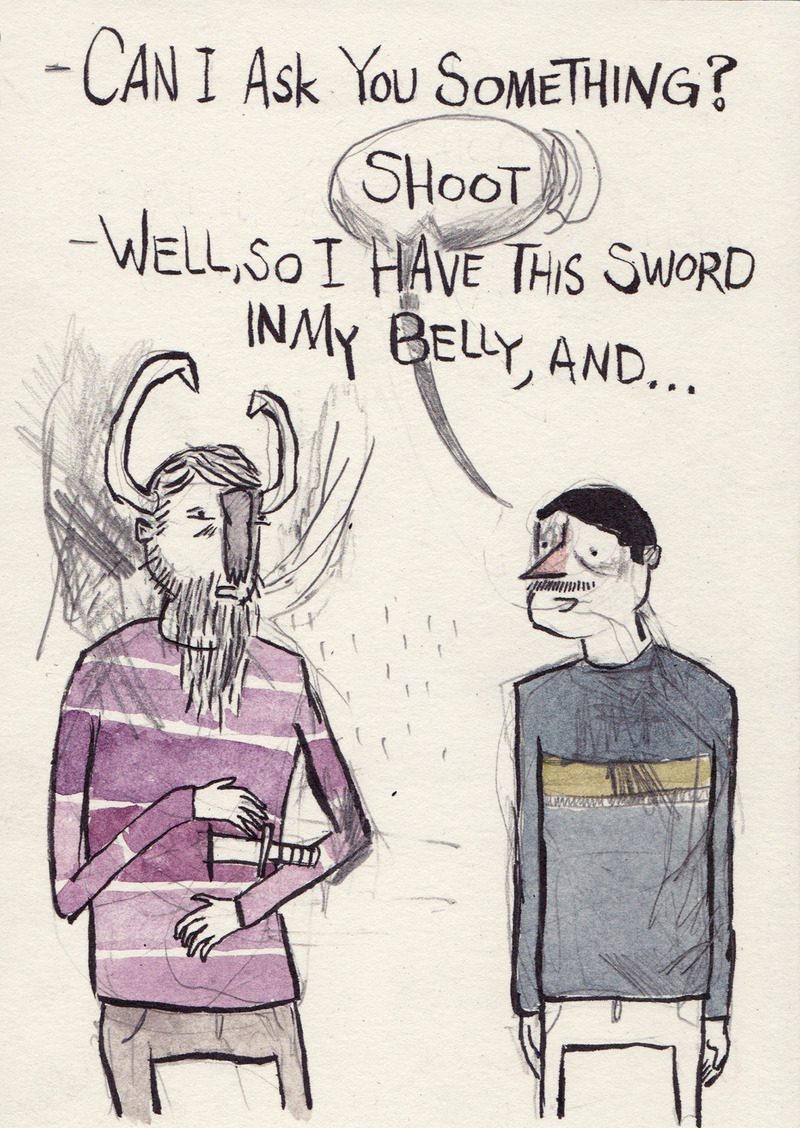 - CAN I ASk YOU SOMETHING?
SHOOT
- WELL, SO I HAVE THIS SWORD
IN MY BELLY, AND...